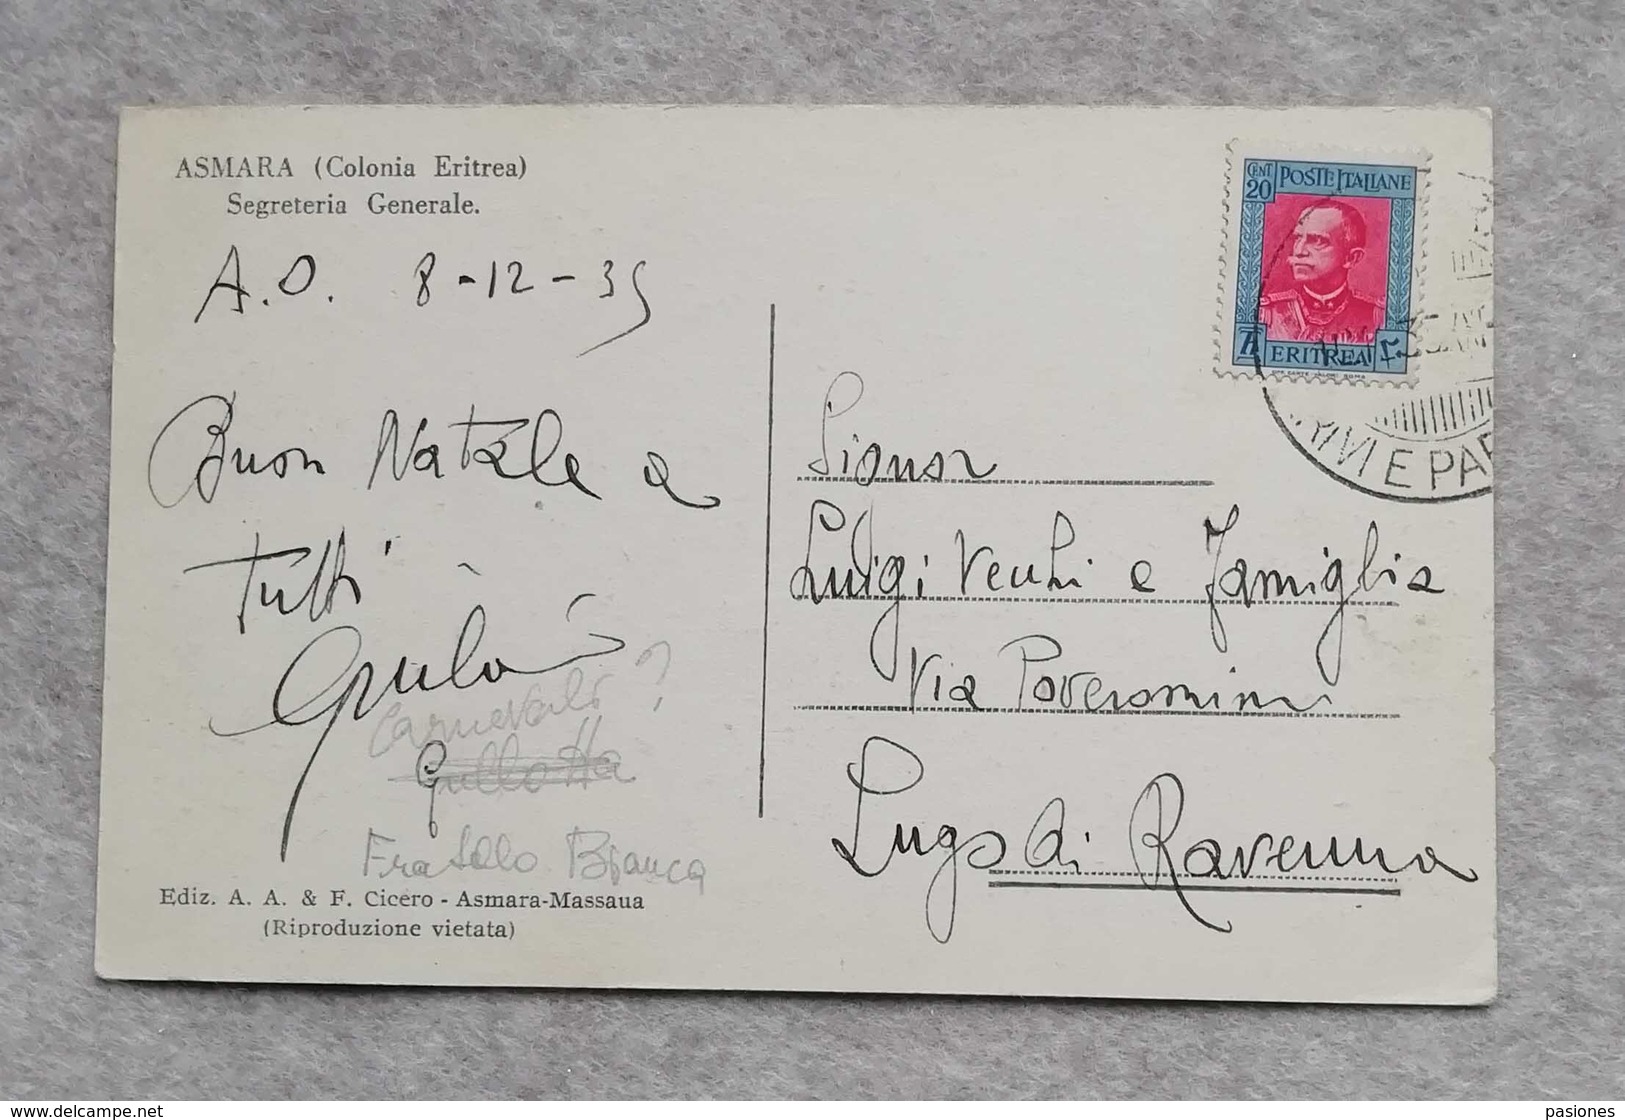 ASMARA (Colonia Eritrea)
Segreteria Generale.
A.O. 8-12-35
Buon Natale a
tutti
Carnevali ?
Gullotta
Fratello Bianca
Ediz. A. A. & F. Cicero - Asmara-Massaua
(Riproduzione vietata)
CENT 20 POSTE ITALIANE
ERITREA
RIVI E PAR
Signor
Luigi Vecchi e famiglia
Via Poveromini
Lugo di Ravenna
www.delcampe.net
pasiones